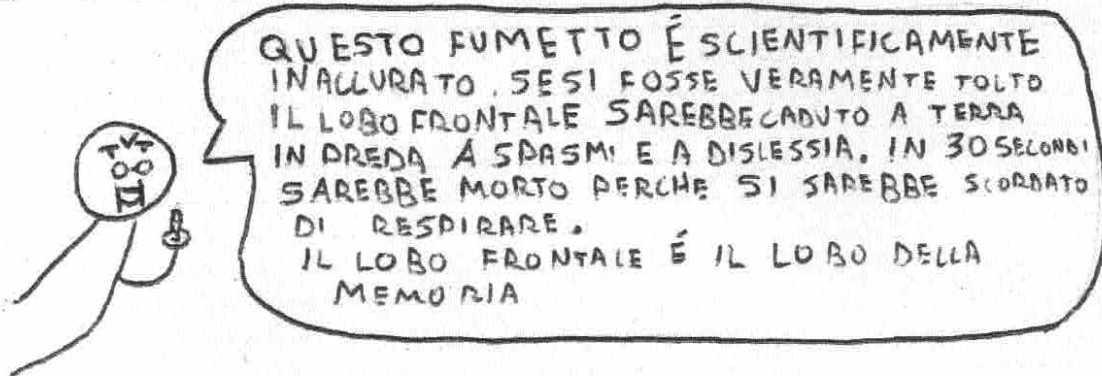 QUESTO FUMETTO É SCIENTIFICAMENTE
INACCURATO. SE SI FOSSE VERAMENTE TOLTO
IL LOBO FRONTALE SAREBBE CADUTO A TERRA
IN PREDA A SPASMI E A DISLESSIA. IN 30 SECONDI
SAREBBE MORTO PERCHE SI SAREBBE SCORDATO
DI RESPIRARE.
IL LOBO FRONTALE É IL LOBO DELLA
MEMORIA